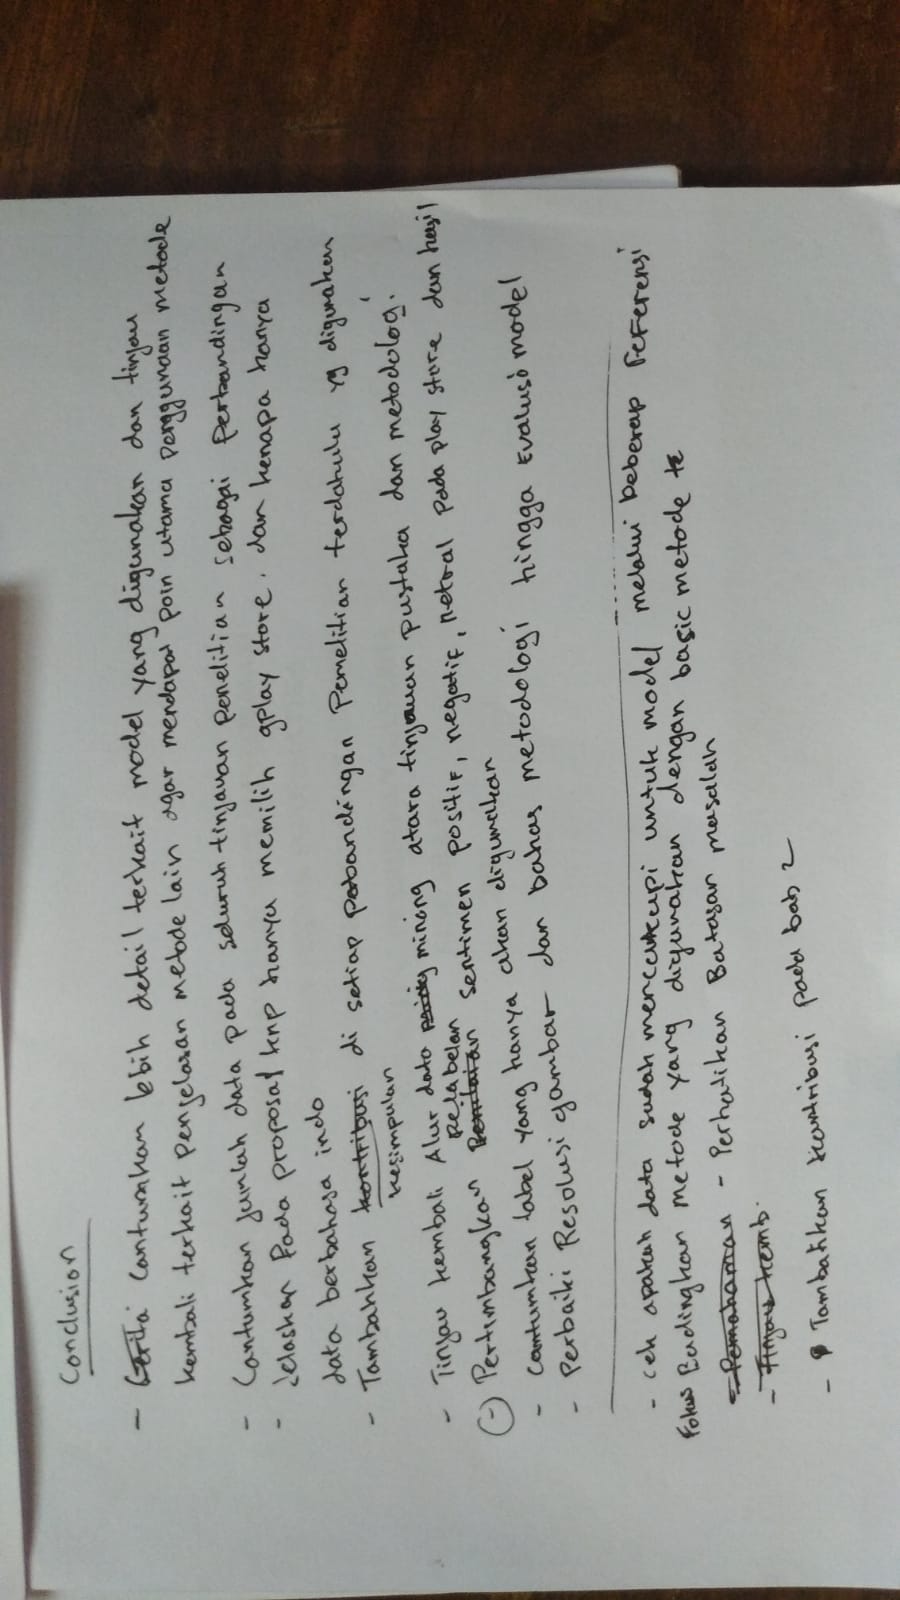 Conclusion
- Cerita Cantumkan lebih detail terkait model yang digunakan dan tinjau
kembali terkait penjelasan metode lain agar mendapat poin utama penggunaan metode
- Cantumkan jumlah data pada seluruh tinjauan penelitian sebagai perbandingan
- Jelaskan pada proposal knp hanya memilih gplay store. dan kenapa hanya
data berbahasa indo
- Tambahkan kontribusi di setiap pebandingan Penelitian terdahulu yg digunakan
kesimpulan
- Tinjau kembali Alur data mining atara tinjauan pustaka dan metodologi
pelabelan
- Pertimbangkan Penilaian sentimen positif, negatif, netral pada play store dan hasil
- Cantumkan label yang hanya akan digunakan
- Perbaiki Resolusi gambar dan bahas metodologi hingga Evaluso model
- cek apakah data sudah mencukupi untuk model melalui beberap referensi
Fokus Badingkan metode yang digunakan dengan basic metode
- Pemahaman - Perhatikan Batasan masalah
- Tinjau kemb.
- Tambahkan kontribusi pada bab 2